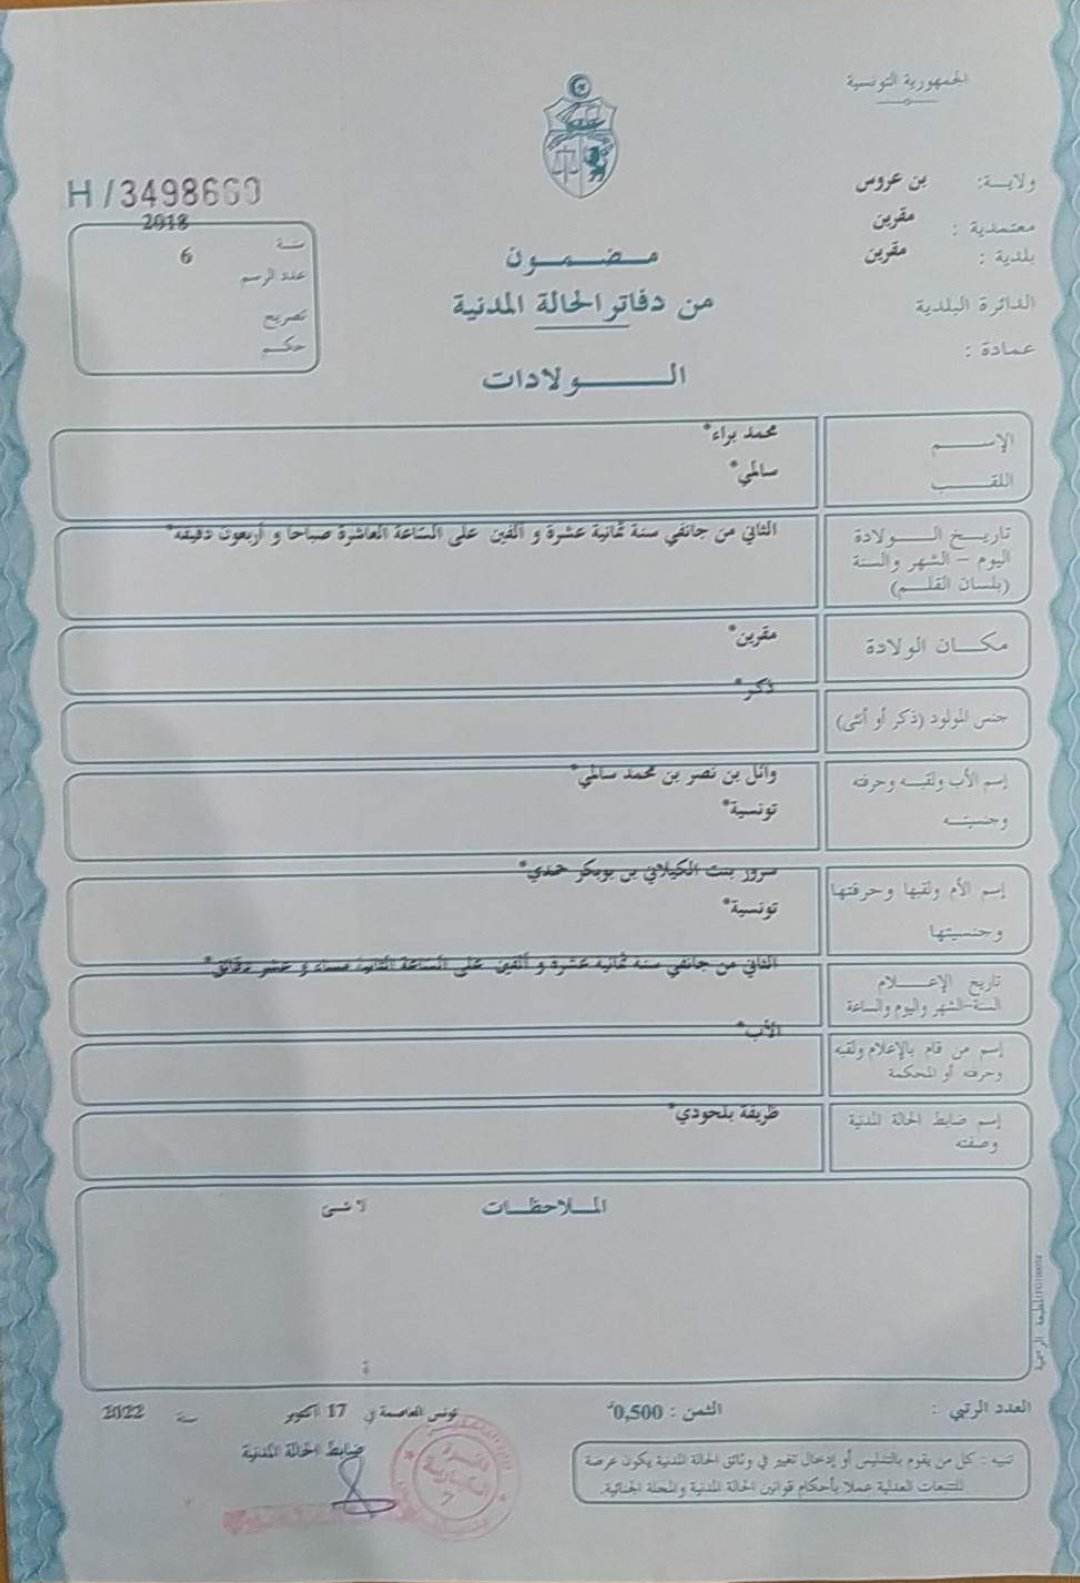 الجمهورية التونسية
ولاية: بن عروس
معتمدية : مقرين
بلدية : مقرين
الدائرة البلدية
عمادة :
H/3498660
سنة 2018
عدد الرسم 6
تصريح
حكم
مضمون
من دفاتر الحالة المدنية
الولادات
الإسم محمد براء*
اللقب سالمي*
تاريخ الولادة
اليوم - الشهر والسنة
(بلسان القلم)
الثاني من جانفي سنة ثمانية عشرة و ألفين على الساعة العاشرة صباحا و أربعون دقيقة*
مكان الولادة مقرين*
جنس المولود (ذكر أو أنثى) ذكر*
إسم الأب ولقبه وحرفته
وجنسيته
وائل بن نصر بن محمد سالمي*
تونسية*
إسم الأم ولقبها وحرفتها
وجنسيتها
سرور بنت الكيلاني بن بوبكر حمدي*
تونسية*
تاريخ الإعلام
السنة-الشهر واليوم والساعة
الثاني من جانفي سنة ثمانية عشرة و ألفين على الساعة الثانية مساء و عشر دقائق*
إسم من قام بالإعلام ولقبه
وحرفته أو المحكمة
الأب*
إسم ضابط الحالة المدنية
وصفته
ظريفة بلحودي*
الملاحظات لا شئ
العدد الرتبي :
الثمن : 0,500د
تونس العاصمة في 17 أكتوبر سنة 2022
ضابط الحالة المدنية
تنبيه : كل من يقوم بالتدليس أو إدخال تغيير في وثائق الحالة المدنية يكون عرضة
للتتبعات العدلية عملا بأحكام قوانين الحالة المدنية والمجلة الجنائية.